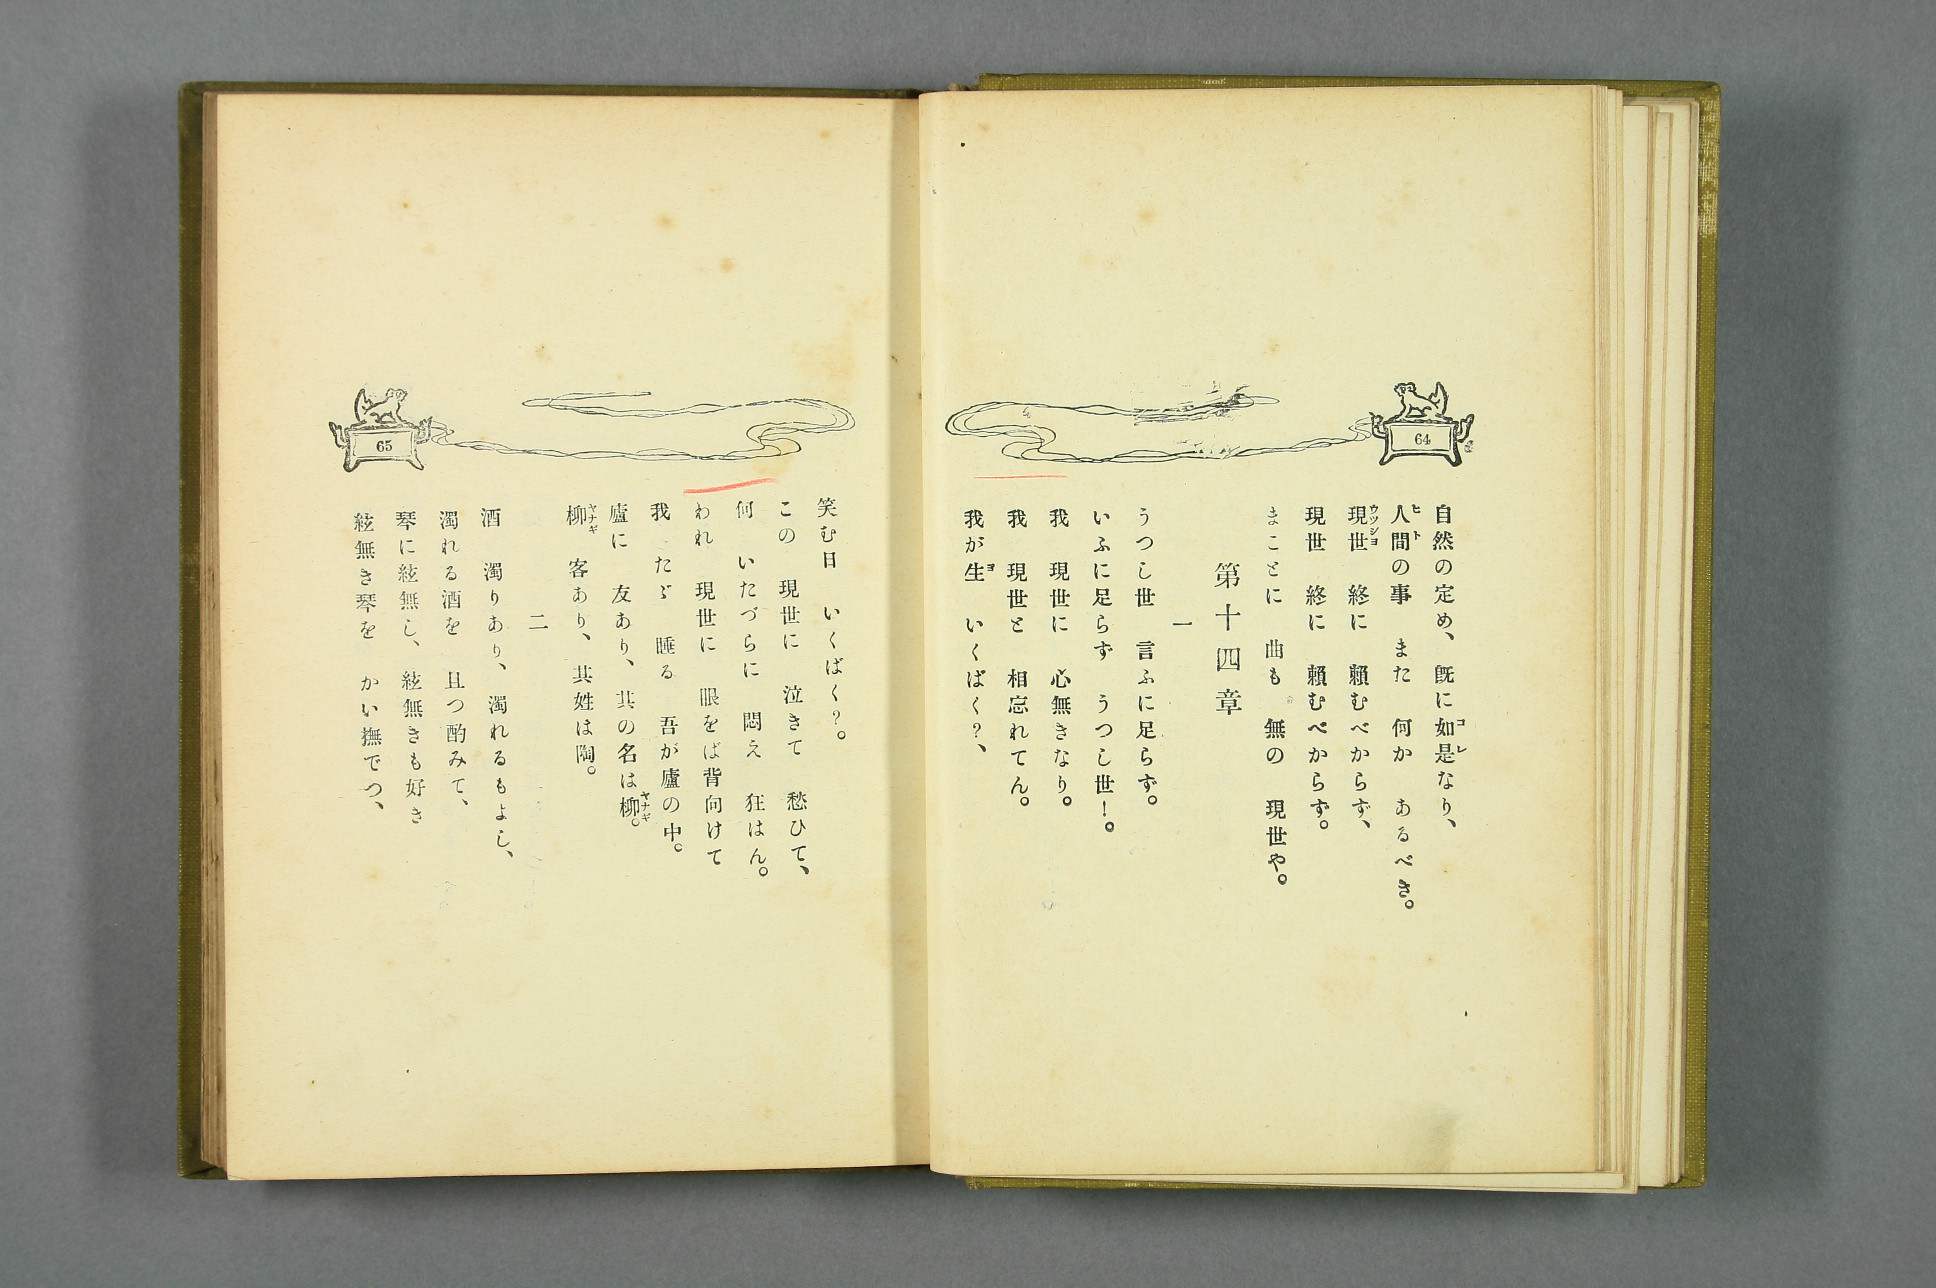 64
自然の定め、既に如是なり、
人間の事　また　何か　あるべき。
現世　終に　頼むべからず、
現世　終に　頼むべからず。
まことに　曲も　無の　現世や。
第十四章
一
うつし世　言ふに足らず。
いふに足らず　うつし世！。
我　現世に　心無きなり。
我　現世と　相忘れてん。
我が生　いくばく？、
65
笑む日　いくばく？。
この　現世に　泣きて　愁ひて、
何　いたづらに　悶え　狂はん。
われ　現世に　眼をば背向けて
我　たゞ　睡る　吾が廬の中。
廬に　友あり、其の名は柳。
柳　客あり、其姓は陶。
二
酒　濁りあり、濁れるもよし、
濁れる酒を　且つ酌みて、
琴に絃無し、絃無きも好き
絃無き琴を　かい撫でつ、